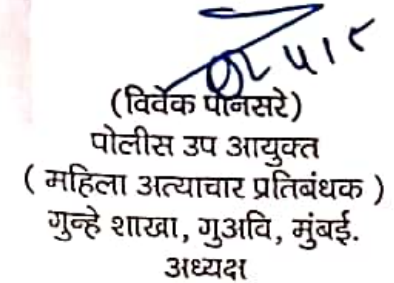 (विवेक पानसरे)
पोलीस उप आयुक्त
( महिला अत्याचार प्रतिबंधक )
गुन्हे शाखा, गुअवि, मुंबई.
अध्यक्ष